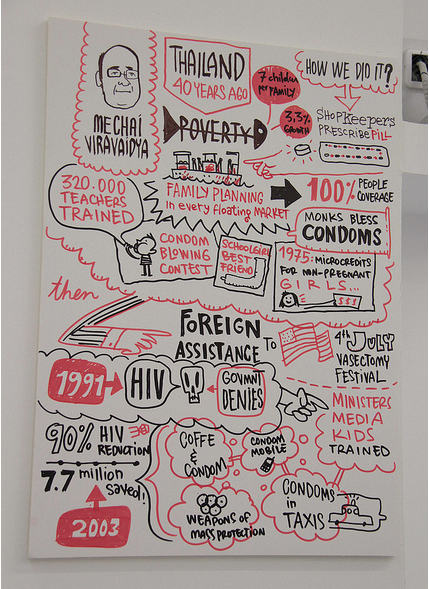 THAILAND
40 YEARS AGO
7 children
PER FAMILY
HOW WE DID IT?
MECHAI
VIRAVAIDYA
POVERTY
3,3%
GROWTH
SHOPKEEPERS
PRESCRIBE PILL
320.000
TEACHERS
TRAINED
FAMILY PLANNING
in every floating MARKET
100% PEOPLE
COVERAGE
MONKS BLESS
CONDOMS
CONDOM
BLOWING
CONTEST
SCHOOLGIRL
BEST
FRIEND
1975: MICROCREDITS
FOR NON-PREGNANT
GIRLS...
$$$
then
FOREIGN
ASSISTANCE TO
4th JULY
VASECTOMY
FESTIVAL
1991
HIV
GOVMNT
DENIES
MINISTERS
MEDIA
KIDS
TRAINED
90% HIV
REDUCTION
7.7 million
saved!
2003
COFFE
&
CONDOM
CONDOM
MOBILE
WEAPONS OF
MASS PROTECTION
CONDOMS
in
TAXIS